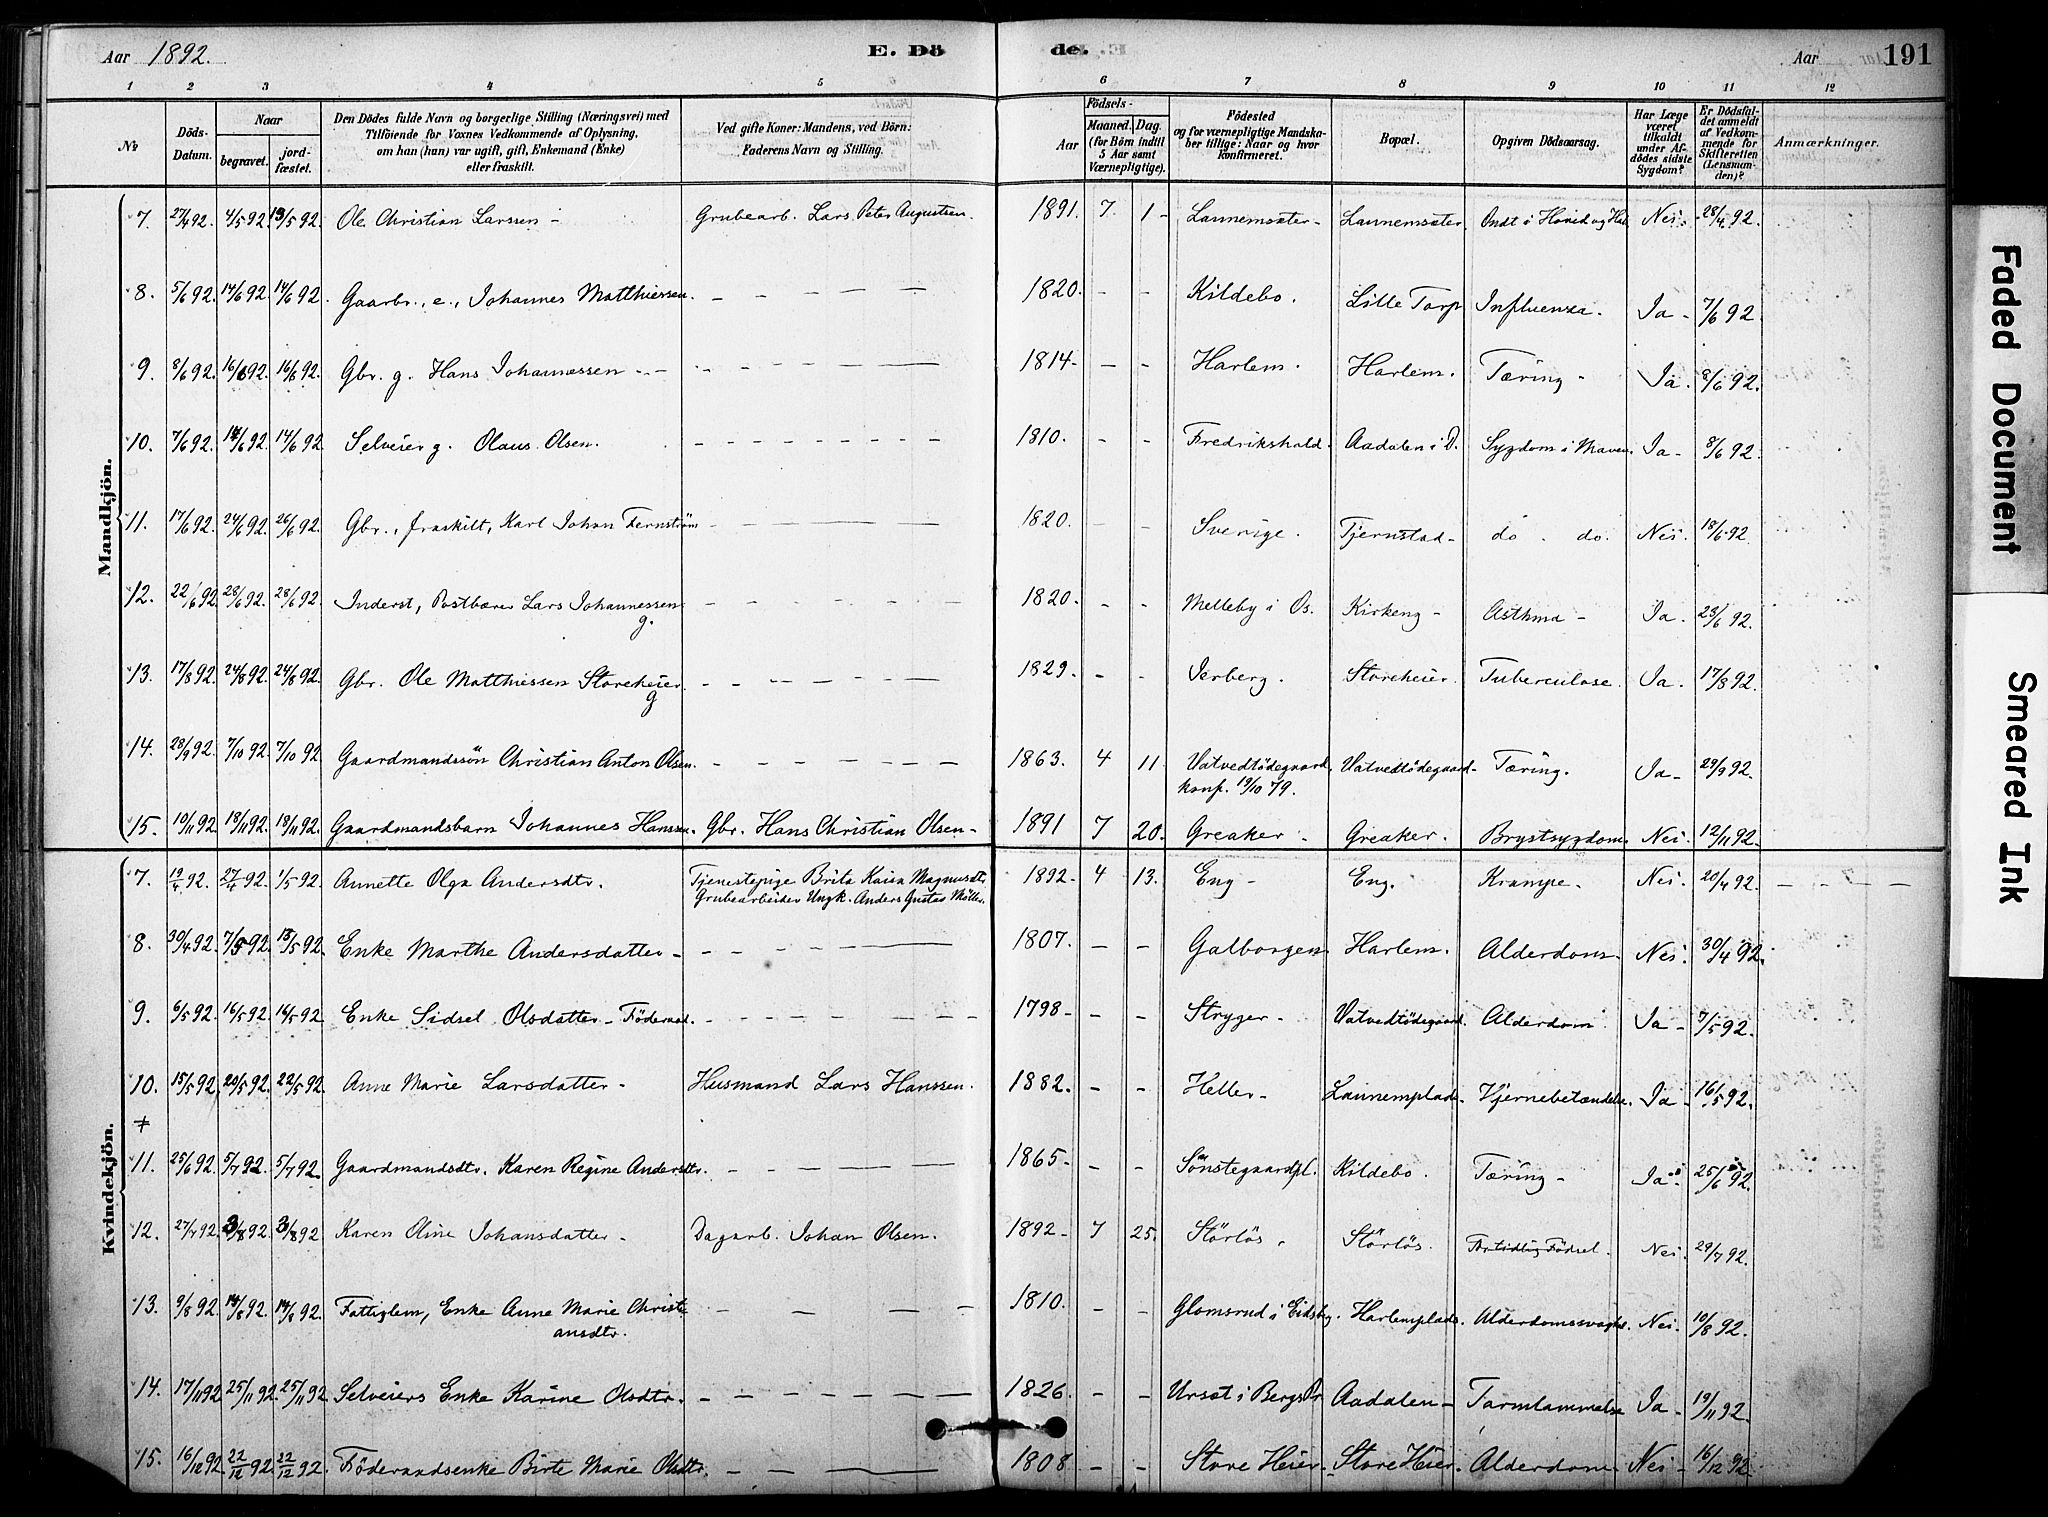 Aar 1892. E. Dö de. Aar 191
1 2 3 4 5 6 7 8 9 10 11 12
No Döds-Datum. Naar begravet. jord-fæstet. Den Dödes fulde Navn og borgerlige Stilling (Næringsvei) med Tilföiende for Voxnes Vedkommende af Oplysning, om han (hun) var ugift, gift, Enkemand (Enke) eller fraskilt. Ved gifte Koner: Mandens, ved Börn: Faderens Navn og Stilling. Födsels- Aar Maaned. Dag. (for Börn indtil 5 Aar samt Værnepligtige). Födested og for værnepligtige Mandska-ber tillige: Naar og hvor konfirmeret. Bopæl. Opgiven Dödsaarsag. Har Læge været tilkaldt under Af-dödes sidste Sygdom? Er Dödsfal-det anmeldt af Vedkom-mende for Skifteretten (Lensman-den)? Anmærkninger.
Mandkjön.
7. 27/4 92. 4/5 92. 13/5 92. Ole Christian Larssen - Grubearb. Lars Peter Augustsen. 1891. 7 1 - Launemsæter - Launemsæter. Ondt i Hoved og Nei. 28/4 92.
8. 5/6 92. 14/6 92. 14/6 92. Gaarbr., e., Johannes Matthiessen. - 1820. - - Kildebo. Lille Torp Influenza. Ja - 7/6 92.
9. 8/6 92. 16/6 92. 16/6 92. Gbr. g. Hans Johannessen - 1814 - - - Harlem. Harlem. Tæring - Ja. 8/6 92.
10. 7/6 92. 14/6 92. 14/6 92. Selveier g. Olaus Olsen. - 1810. - - Fredrikshald. Aadalen i D. Sygdom i Maven. Ja - 8/6 92.
11. 17/6 92. 24/6 92. 26/6 92. Gbr., fraskilt, Karl Johan Fernstrøm - 1820. - - Sverige. Tjernstad - do. do. Nei. 18/6 92.
12. 22/6 92. 28/6 92. 28/6 92. Inderst, Postbærer Lars Johannessen g. - 1820. - - Melleby i Os. Kirkeng - Asthma - Ja. 23/6 92.
13. 17/8 92. 24/8 92. 24/8 92. Gbr. Ole Matthiessen Storeheier g - 1829. - - Jerberg. Storeheier. Tuberculose. Ja. 17/8 92.
14. 28/9 92. 7/10 92. 7/10 92. Gaardmandssön Christian Anton Olsen. - 1863. 4 11. Vatvedtödegaard konf. 19/10 79. Vatvedtödegaard - Tæring. Ja - 29/9 92.
15. 10/11 92. 18/11 92. 18/11 92. Gaardmandsbarn Johannes Hanssen. Gbr. Hans Christian Olsen - 1891 7 20. Greaker - Greaker. Brystsygdom. Nei. 12/11 92.
Kvindekjön.
7. 19/4 92. 27/4 92. 1/5 92. Annette Olga Andersdtr. Tjenestepige Brita Kaisa Magnusdtr. Grubearbeider Ungk. Anders Gustav Möller. 1892 - 4 13. Eng - Eng. Krampe - Nei. 20/4 92. - - - -
8. 30/4 92. 7/5 92. 13/5 92. Enke Marthe Andersdatter - 1807. - - Galborgen. Harlem. Alderdom. Nei. 30/4 92.
9. 6/5 92. 16/5 92. 16/5 92. Enke Sidsel Olsdatter - Föderaad. - 1798 - - - Stryger - Vatvedtödegaard. Alderdom Ja - 7/5 92.
10. 15/5 92. 20/5 92. 22/5 92. Anne Marie Larsdatter - Husmand Lars Hanssen. 1882. - - Heller - Launemplads. Hjernebetændelse. Ja - 16/5 92.
11. 25/6 92. 5/7 92. 5/7 92. Gaardmandsdtr. Karen Regine Andersdtr. - 1865 - - - Sønstegaardpl. Kildebo. Tæring - Ja. 25/6 92.
12. 27/7 92. 3/8 92. 3/8 92. Karen Oline Johansdatter - Dagarb. Johan Olsen. 1892 - 7 25. Störlös. Störlös. Fortidlig Födsel. Nei. 29/7 92.
13. 9/8 92. 14/8 92. 14/8 92. Fattiglem, Enke Anne Marie Christi ansdtr. - 1810. - - Glomsrud i Eidsbg. Harlemplads. Alderdomssvaghd. Nei. 10/8 92.
14. 17/11 92. 25/11 92. 25/11 92. Selveiers Enke Karine Olsdtr. - 1826. - - Ursæt i Bergs Pr Aadalen - Tarmlammelse Ja - 19/11 92.
15. 16/12 92. 22/12 92. 22/12 92. Föderaadsenke Birte Marie Olsdtr. - 1808 - - - Store Heier. Store Heier. Alderdom. Nei - 16/12 92.
Faded Document
Smeared Ink